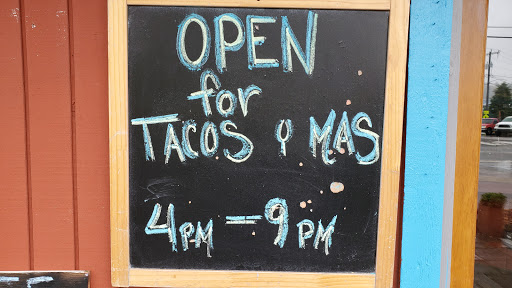 OPEN
for
TACOS y MAS
4PM = 9PM